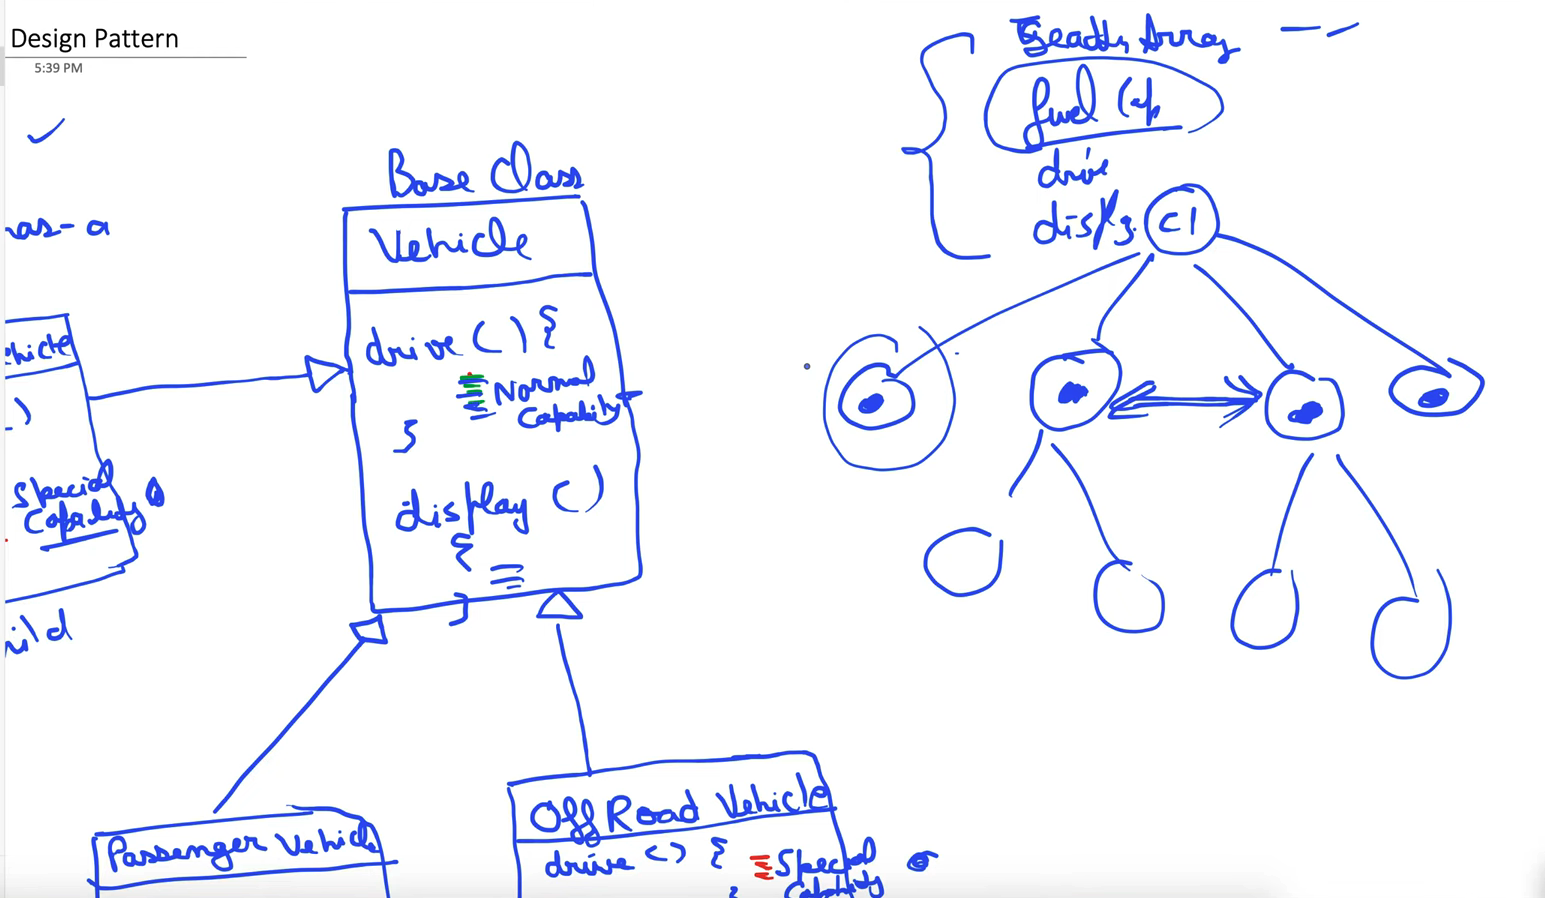 Design Pattern
5:39 PM
has-a
Vehicle
)
Special
Capability
child
Base Class
Vehicle
drive () {
Normal
Capability
}
display ()
{
}
Passenger Vehicle
Off Road Vehicle
drive () {
Special
Capability
Array
fuel Cap
drive
C1